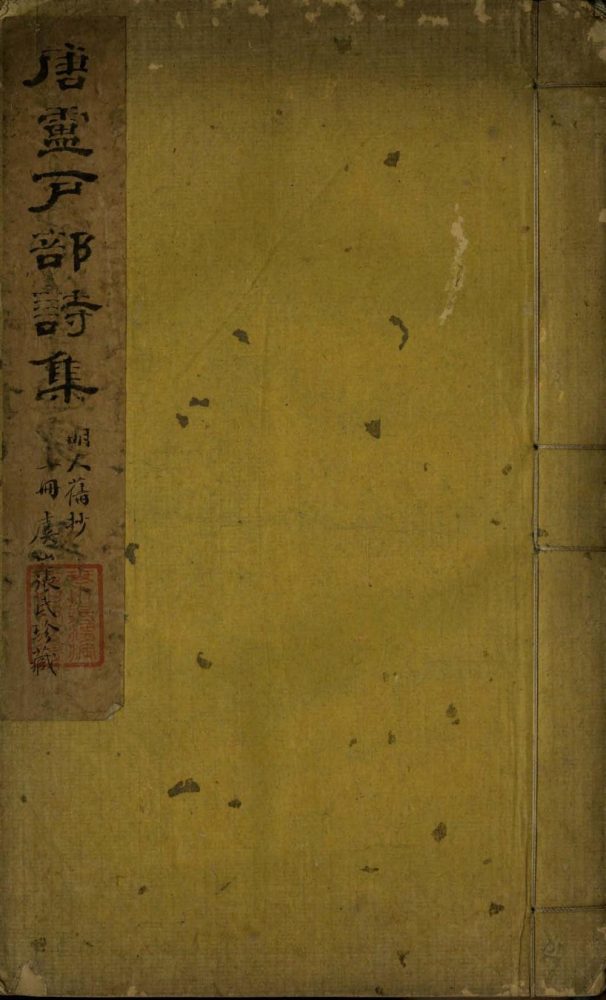 唐盧戶部詩集
明人舊抄
一冊 虞山張氏珍藏